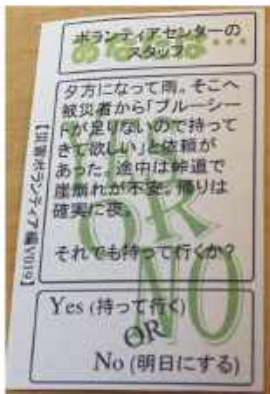 あなたは...
ボランティアセンターの
スタッフ
夕方になって雨。そこへ
被災者から「ブルーシー
トが足りないので持って
きて欲しい」と依頼が
あった。途中は峠道で
崖崩れが不安。帰りは
確実に夜。
それでも持って行くか？
YES
OR
NO
Yes (持って行く)
OR
No (明日にする)
ボランティア編